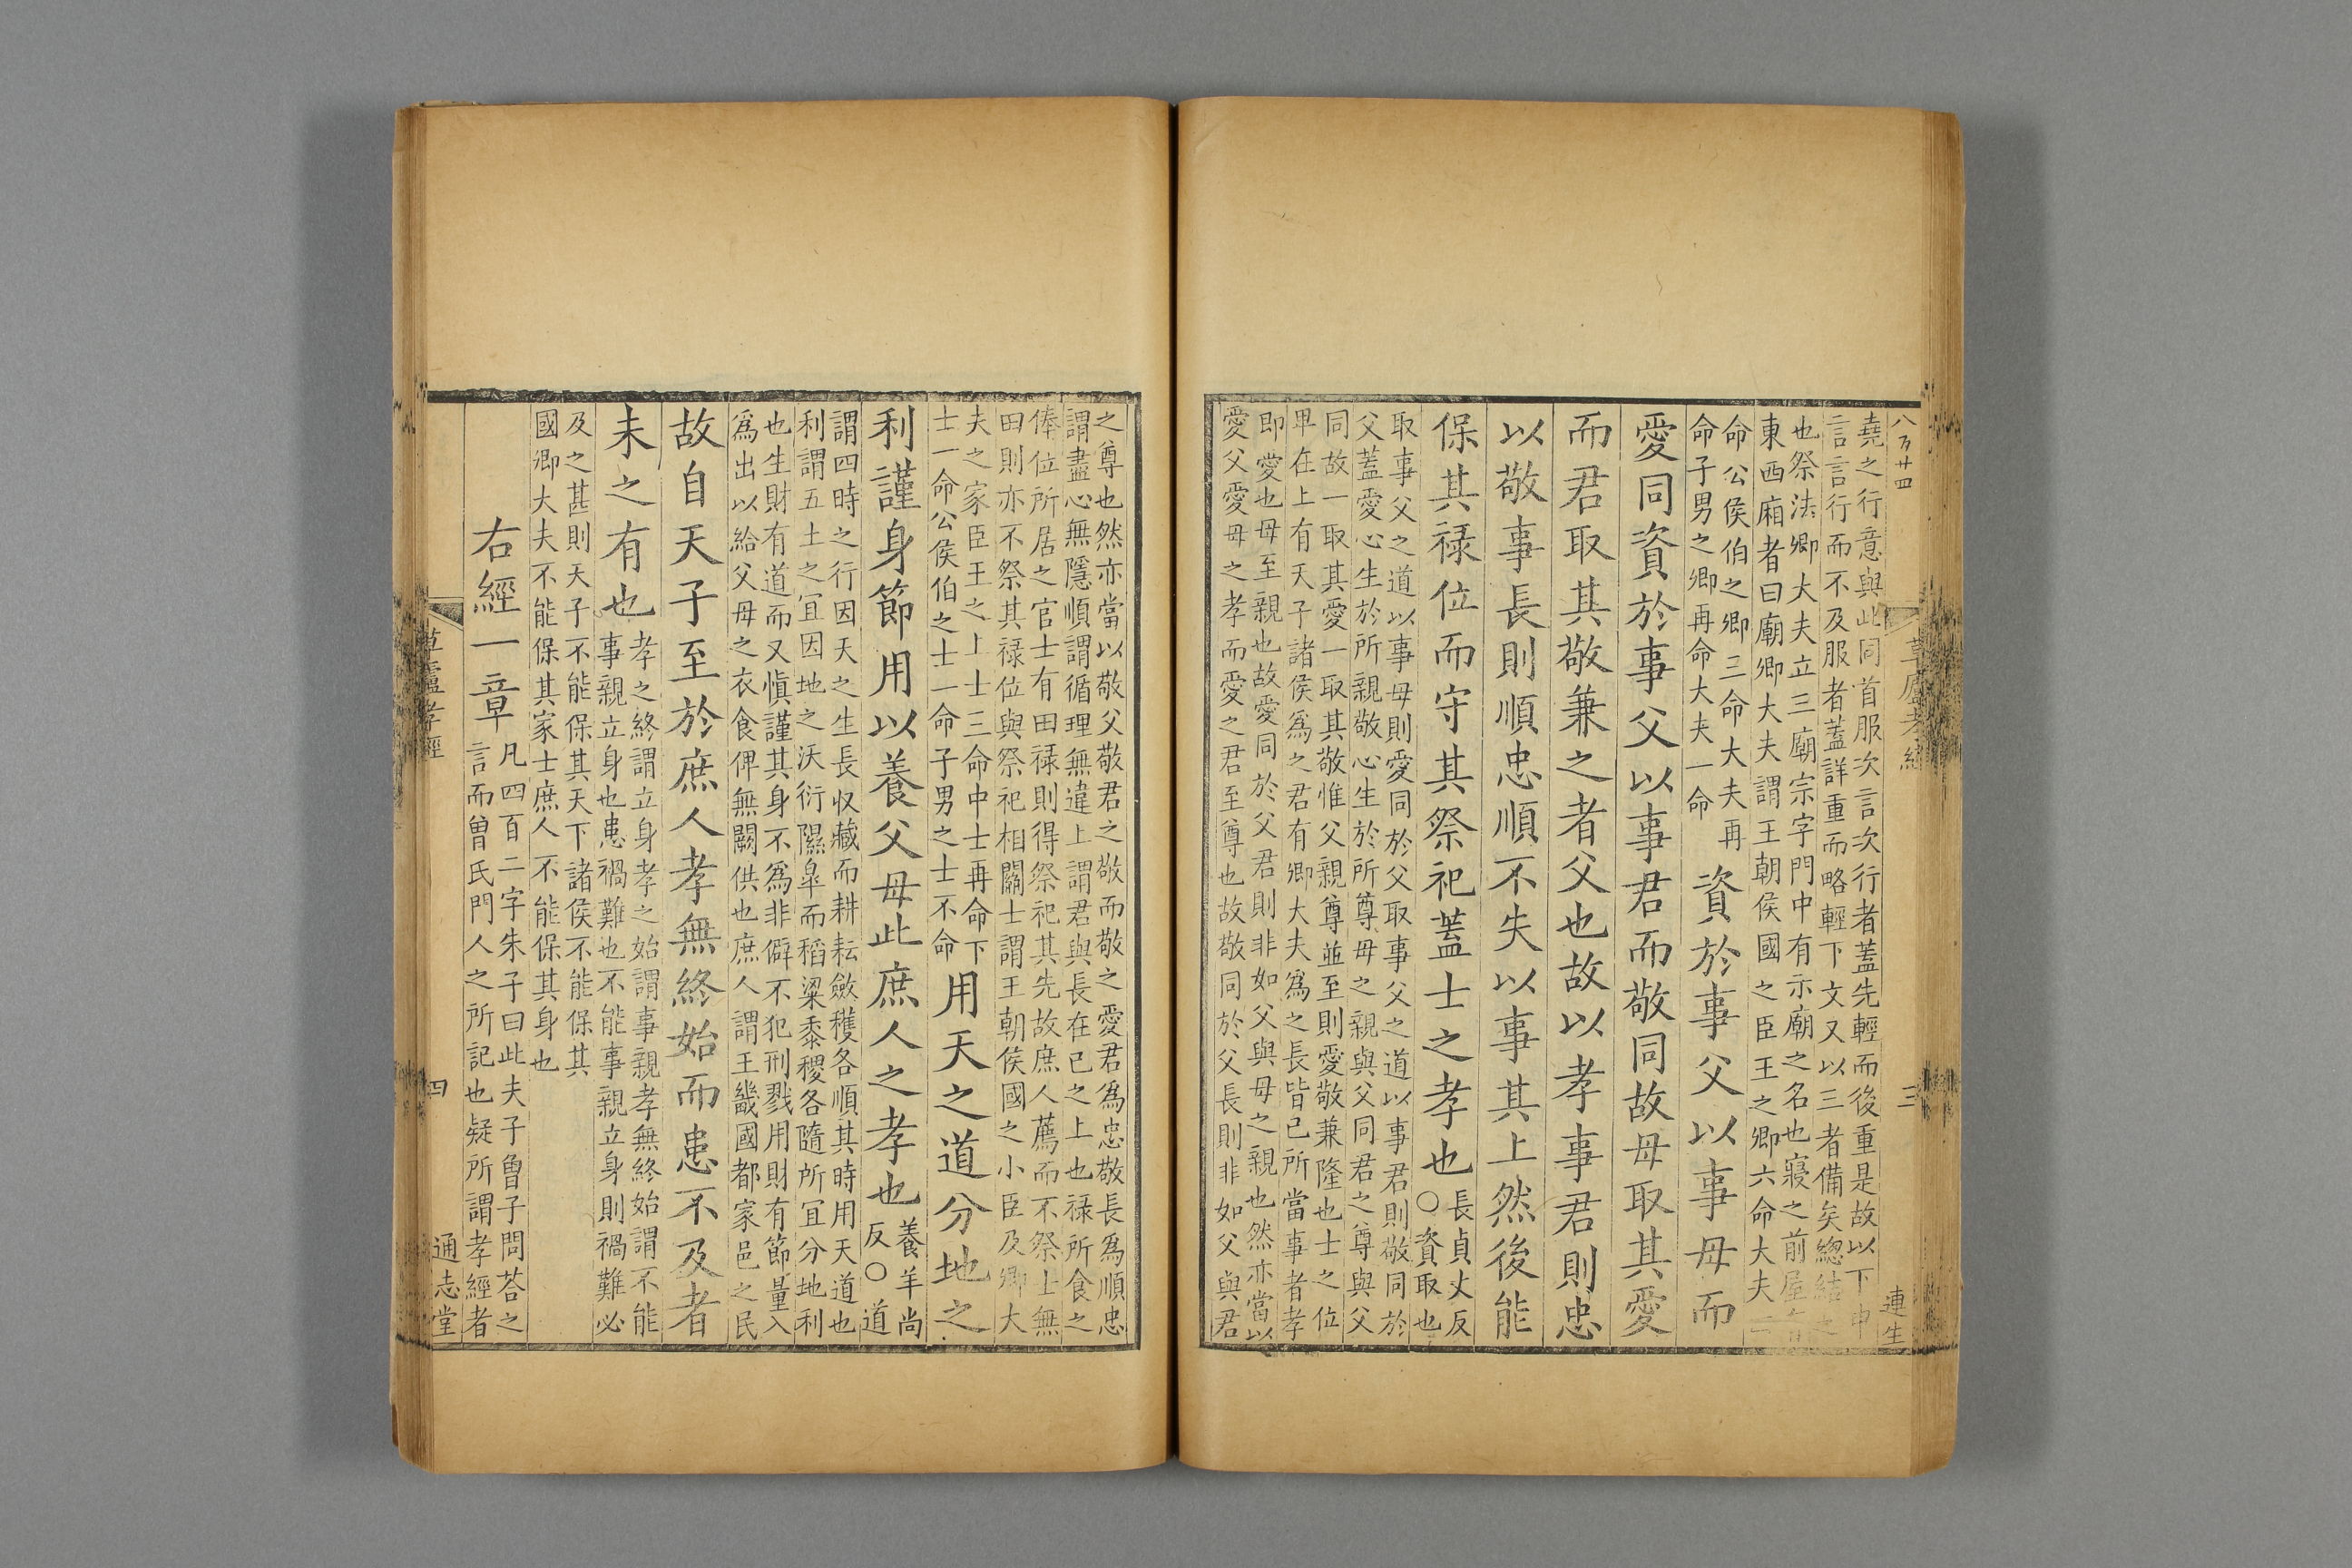 八百廿四
草廬孝經
三
連生
堯之行意與此同首服次言次行者蓋先輕而後重是故以下申
言言行而不及服者蓋詳重而略輕下文又以三者備矣總結之
也祭法卿大夫立三廟宗字門中有示廟之名也寢之前屋
東西廂者曰廟卿大夫謂王朝侯國之臣王之卿六命大夫
命公侯伯之卿三命大夫再
命子男之卿再命大夫一命
資於事父以事母而
愛同資於事父以事君而敬同故母取其愛
而君取其敬兼之者父也故以孝事君則忠
以敬事長則順忠順不失以事其上然後能
保其祿位而守其祭祀蓋士之孝也
長貞丈反
○資取也
取事父之道以事母則愛同於父取事父之道以事君則敬同於
父蓋愛心生於所親敬心生於所尊母之親與父同君之尊與父
同故一取其愛一取其敬惟父親尊並至則愛敬兼隆也士之位
卑在上有天子諸侯爲之君有卿大夫爲之長皆已所當事者孝
即愛也母至親也故愛同於父君則非如父與母之親也然亦當以
愛父愛母之孝而愛之君至尊也故敬同於父長則非如父與君
之尊也然亦當以敬父敬君之敬而敬之愛君爲忠敬長爲順忠
謂盡心無隱順謂循理無違上謂君與長在已之上也祿所食之
俸位所居之官士有田祿則得祭祀其先故庶人薦而不祭士無
田則亦不祭其祿位與祭祀相關士謂王朝侯國之小臣及卿大
夫之家臣王之上士三命中士再命下
士一命公侯伯之士一命子男之士不命
用天之道分地之
利謹身節用以養父母此庶人之孝也
養羊尚
反○道
謂四時之行因天之生長收藏而耕耘斂穫各順其時用天道也
利謂五土之宜因地之沃衍隰皐而稻粱黍稷各隨所宜分地利
也生財有道而又愼謹其身不爲非僻不犯刑戮用財有節量入
爲出以給父母之衣食俾無闕供也庶人謂王畿國都家邑之民
故自天子至於庶人孝無終始而患不及者
未之有也
孝之終謂立身孝之始謂事親孝無終始謂不能
事親立身也患禍難也不能事親立身則禍難必
及之甚則天子不能保其天下諸侯不能保其
國卿大夫不能保其家士庶人不能保其身也
右經一章
凡四百二字朱子曰此夫子曾子問荅之
言而曾氏門人之所記也疑所謂孝經者
草廬孝經
四
通志堂